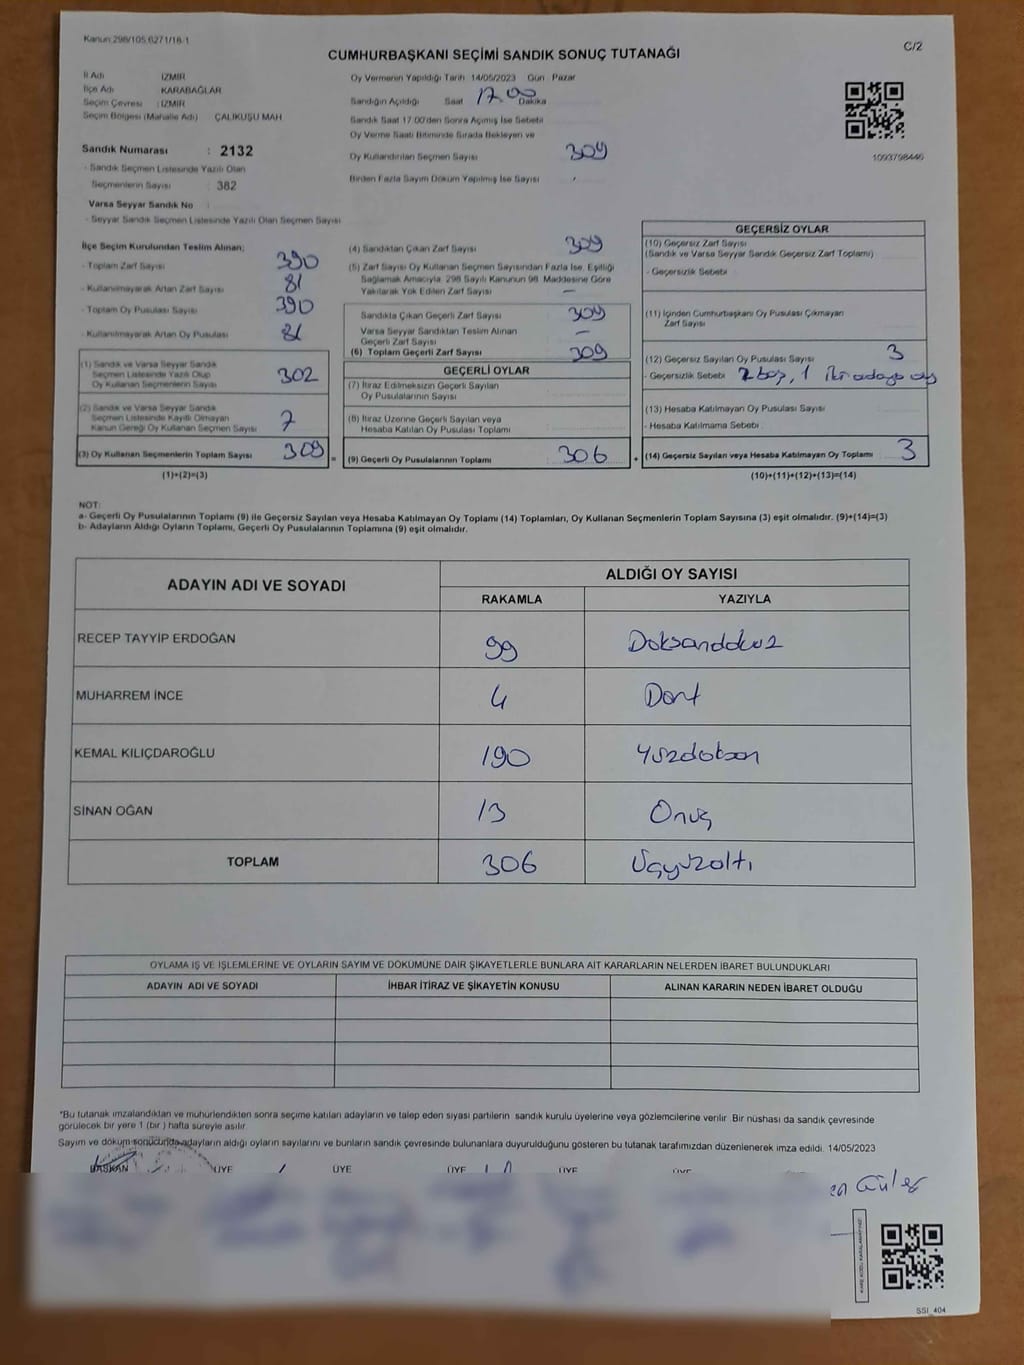 Kanun:298/105,6271/16-1
C/2
CUMHURBAŞKANI SEÇİMİ SANDIK SONUÇ TUTANAĞI
İl Adı İZMİR
İlçe Adı KARABAĞLAR
Seçim Çevresi : İZMİR
Seçim Bölgesi (Mahalle Adı) ÇALIKUŞU MAH
Sandık Numarası : 2132
- Sandık Seçmen Listesinde Yazılı Olan
Seçmenlerin Sayısı : 382
Varsa Seyyar Sandık No :
- Seyyar Sandık Seçmen Listesinde Yazılı Olan Seçmen Sayısı
Oy Vermenin Yapıldığı Tarih 14/05/2023 Gün Pazar
Sandığın Açıldığı Saat 17.00 Dakika
Sandık Saat 17:00'den Sonra Açımış İse Sebebi
Oy Verme Saati Bitiminde Sırada Bekleyen ve
Oy Kullandırılan Seçmen Sayısı 309
Birden Fazla Sayım Döküm Yapılmış İse Sayısı
1093798446
İlçe Seçim Kurulundan Teslim Alınan;
- Toplam Zarf Sayısı 390
- Kullanılmayarak Artan Zarf Sayısı 81
- Toplam Oy Pusulası Sayısı 390
- Kullanılmayarak Artan Oy Pusulası 81
(1) Sandık ve Varsa Seyyar Sandık
Seçmen Listesinde Yazılı Olup
Oy Kullanan Seçmenlerin Sayısı 302
(2) Sandık ve Varsa Seyyar Sandık
Seçmen Listesinde Kayıtlı Olmayan
Kanun Gereği Oy Kullanan Seçmen Sayısı 7
(3) Oy Kullanan Seçmenlerin Toplam Sayısı 309
(1)+(2)=(3)
(4) Sandıktan Çıkan Zarf Sayısı 309
(5) Zarf Sayısı Oy Kullanan Seçmen Sayısından Fazla İse, Eşitliği
Sağlamak Amacıyla, 298 Sayılı Kanunun 98. Maddesine Göre
Yakılarak Yok Edilen Zarf Sayısı —
Sandıkta Çıkan Geçerli Zarf Sayısı 309
Varsa Seyyar Sandıktan Teslim Alınan
Geçerli Zarf Sayısı —
(6) Toplam Geçerli Zarf Sayısı 309
GEÇERLİ OYLAR
(7) İtiraz Edilmeksizin Geçerli Sayılan
Oy Pusulalarının Sayısı
(8) İtiraz Üzerine Geçerli Sayılan veya
Hesaba Katılan Oy Pusulası Toplamı
= (9) Geçerli Oy Pusulalarının Toplamı 306
GEÇERSİZ OYLAR
(10) Geçersiz Zarf Sayısı
(Sandık ve Varsa Seyyar Sandık Geçersiz Zarf Toplamı)
- Geçersizlik Sebebi
(11) İçinden Cumhurbaşkanı Oy Pusulası Çıkmayan
Zarf Sayısı
(12) Geçersiz Sayılan Oy Pusulası Sayısı 3
- Geçersizlik Sebebi 2 boş, 1 iki adaya oy
(13) Hesaba Katılmayan Oy Pusulası Sayısı
- Hesaba Katılmama Sebebi
+ (14) Geçersiz Sayılan veya Hesaba Katılmayan Oy Toplamı 3
(10)+(11)+(12)+(13)=(14)
NOT:
a- Geçerli Oy Pusulalarının Toplamı (9) ile Geçersiz Sayılan veya Hesaba Katılmayan Oy Toplamı (14) Toplamları, Oy Kullanan Seçmenlerin Toplam Sayısına (3) eşit olmalıdır. (9)+(14)=(3)
b- Adayların Aldığı Oyların Toplamı, Geçerli Oy Pusulalarının Toplamına (9) eşit olmalıdır.
ADAYIN ADI VE SOYADI ALDIĞI OY SAYISI
RAKAMLA YAZIYLA
RECEP TAYYİP ERDOĞAN 99 Doksandokuz
MUHARREM İNCE 4 Dört
KEMAL KILIÇDAROĞLU 190 Yüzdoksan
SİNAN OĞAN 13 Onüç
TOPLAM 306 Üçyüzaltı
OYLAMA İŞ VE İŞLEMLERİNE VE OYLARIN SAYIM VE DÖKÜMÜNE DAİR ŞİKAYETLERLE BUNLARA AİT KARARLARIN NELERDEN İBARET BULUNDUKLARI
ADAYIN ADI VE SOYADI İHBAR İTİRAZ VE ŞİKAYETİN KONUSU ALINAN KARARIN NEDEN İBARET OLDUĞU
*Bu tutanak imzalandıktan ve mühürlendikten sonra seçime katılan adayların ve talep eden siyasi partilerin sandık kurulu üyelerine veya gözlemcilerine verilir. Bir nüshası da sandık çevresinde
görülecek bir yere 1 (bir ) hafta süreyle asılır.
Sayım ve döküm sonucunda adayların aldığı oyların sayılarını ve bunların sandık çevresinde bulunanlara duyurulduğunu gösteren bu tutanak tarafımızdan düzenlenerek imza edildi. 14/05/2023
BAŞKAN ÜYE ÜYE ÜYE ÜYE ÜYE
SSİ_404